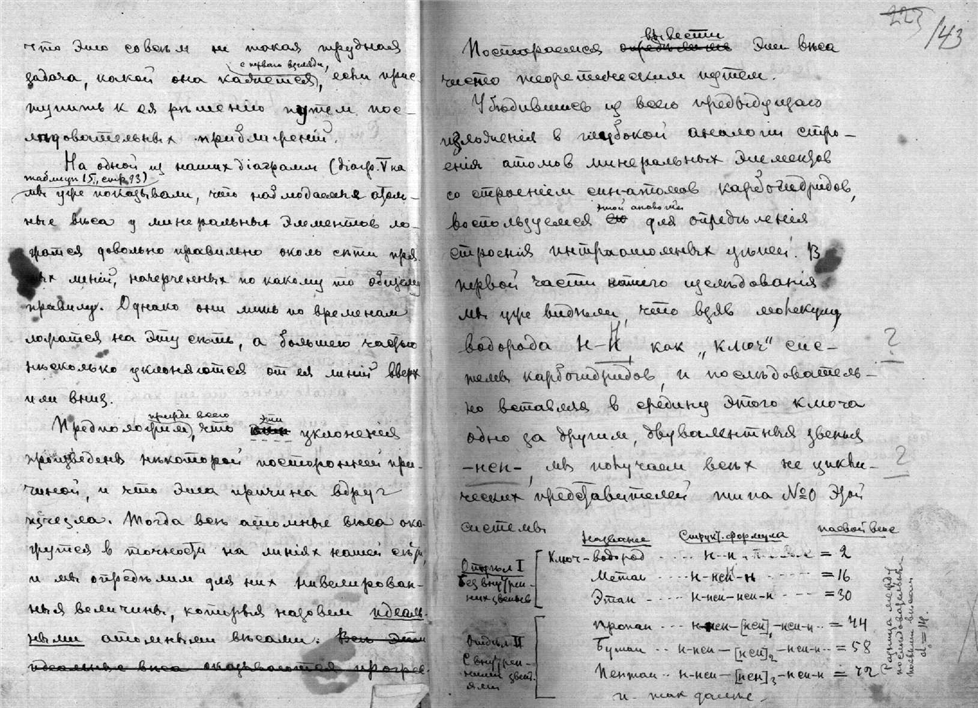 что это совсѣмъ не такая трудная
с перваго взгляда
задача, какой она кажется, если прис-
тупить к ея рѣшенію путем пос-
лѣдовательных приближеній.
На одной из наших діаграмм (діагр. V на
таблицѣ 15, стр. 93)
мы уже показывали, что наблюдаемые атом-
ные вѣса у минеральных элементов ло-
жатся довольно правильно около сѣти пря-
мых линій, начерченных по какому то общему
правилу. Однако они лишь по временам
ложатся на эту сѣть, а большею частью
нѣсколько уклоняются от ея линій вверх
или вниз.
прежде всего эти
Предположим, что уклоненія
произведены нѣкоторой посторонней при-
чиной, и что эта причина вдруг
изчезла. Тогда всѣ атомные вѣса ока-
жутся в точности на линіях нашей сѣти,
и мы опредѣлим для них нивелирован-
ныя величины, которыя назовем идеаль-
ными атомными вѣсами. Всѣ эти
идеальные вѣса оказываются
223
143
вывести
Постараемся опредѣлить эти вѣса
чисто теоретическим путем.
Убѣдившись из всего предыдущаго
изложенія в глубокой аналогіи стро-
енія атомов минеральных элементов
со строеніем син-атомов карбогидридов,
этой аналогіей
воспользуемся для опредѣленія
строенія интраатомных цѣпей. В
первой части нашего изслѣдованія
мы уже видѣли, что взяв молекулу
водорода н-н, как „ключ" сис- ?
темы карбогидридов, и послѣдователь-
но вставляя в средину этого ключа
одно за другим, двувалентныя звенья
-нсн-, мы получаем всѣх не цикли- ?
ческих представителей типа №0 этой
системы
Названіе Структ. формула паевой вѣс
Отдѣл I
Без внутрен-
них звеньев
Ключ-водород н-н = 2
Метан н-нсн-н = 16
Этан н-нсн-нсн-н = 30
Отдѣл II
С внутрен-
ними звень-
ями
Пропан н-нсн-[нсн]₁-нсн-н = 44
Бутан н-нсн-[нсн]₂-нсн-н = 58
Пентан н-нсн-[нсн]₃-нсн-н = 72
и так далѣе
Разница между
послѣдовательными
паевыми вѣсами
d=14.